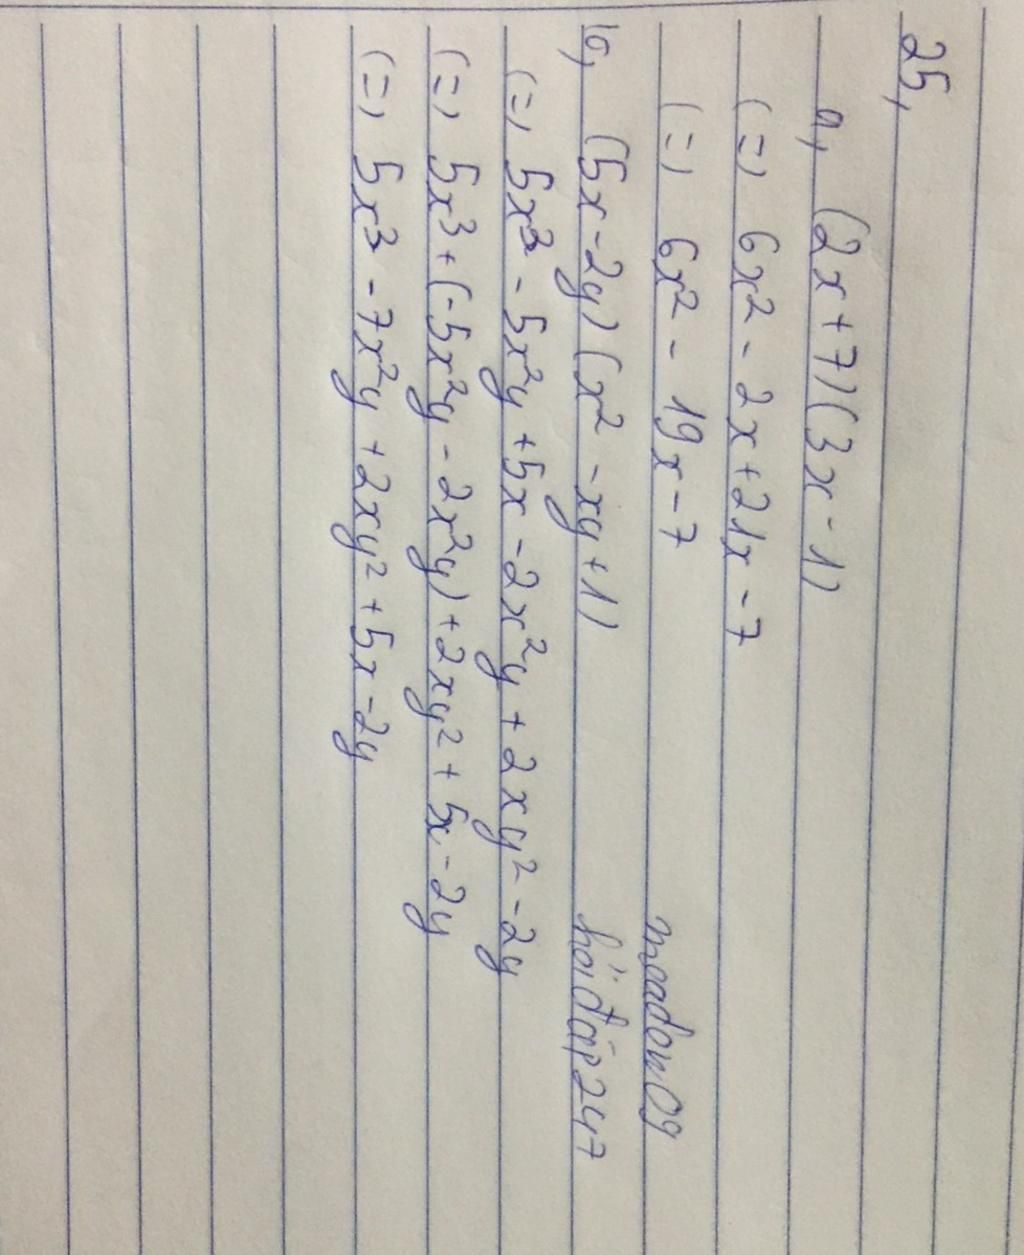 25,
a, (2x+7)(3x-1)
(=) 6x² - 2x + 21x - 7
(=) 6x² - 19x - 7
b, (5x-2y)(x²-xy+1)
(=) 5x³ - 5x²y + 5x - 2x²y + 2xy² - 2y
(=) 5x³ + (-5x²y - 2x²y) + 2xy² + 5x - 2y
(=) 5x³ - 7x²y + 2xy² + 5x - 2y
hỏi đáp 247